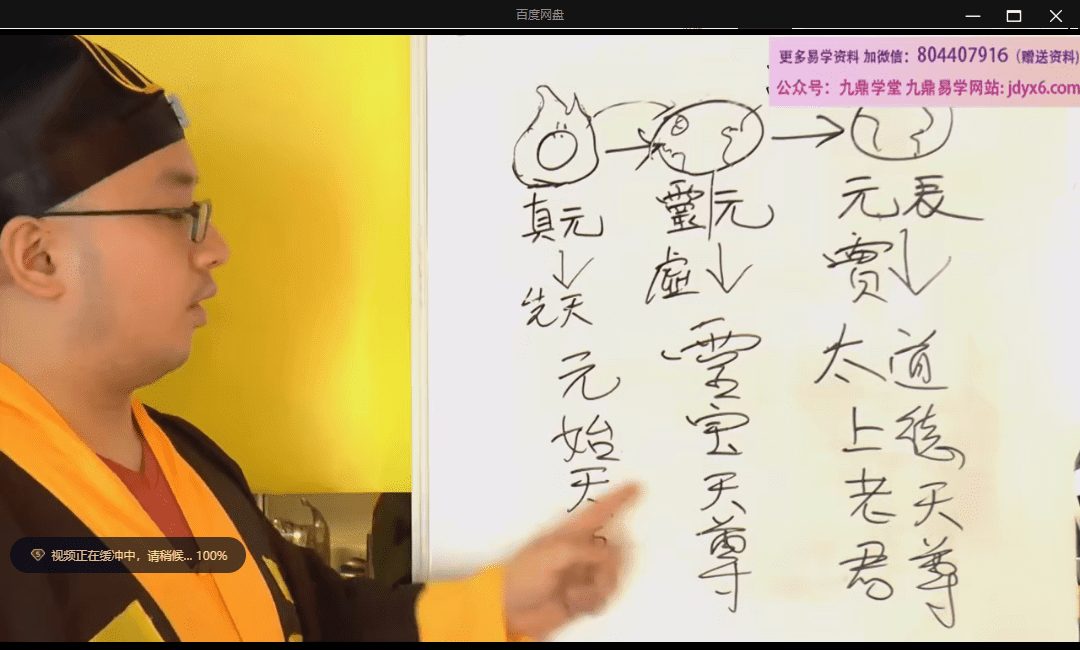 百度网盘
更多易学资料 加微信：804407916（赠送资料）
公众号：九鼎学堂 九鼎易学网站: jdyx6.com
真元
先天
元始天
靈元
虛
靈宝天尊
元
太上老君
道德天尊
视频正在缓冲中，请稍候... 100%